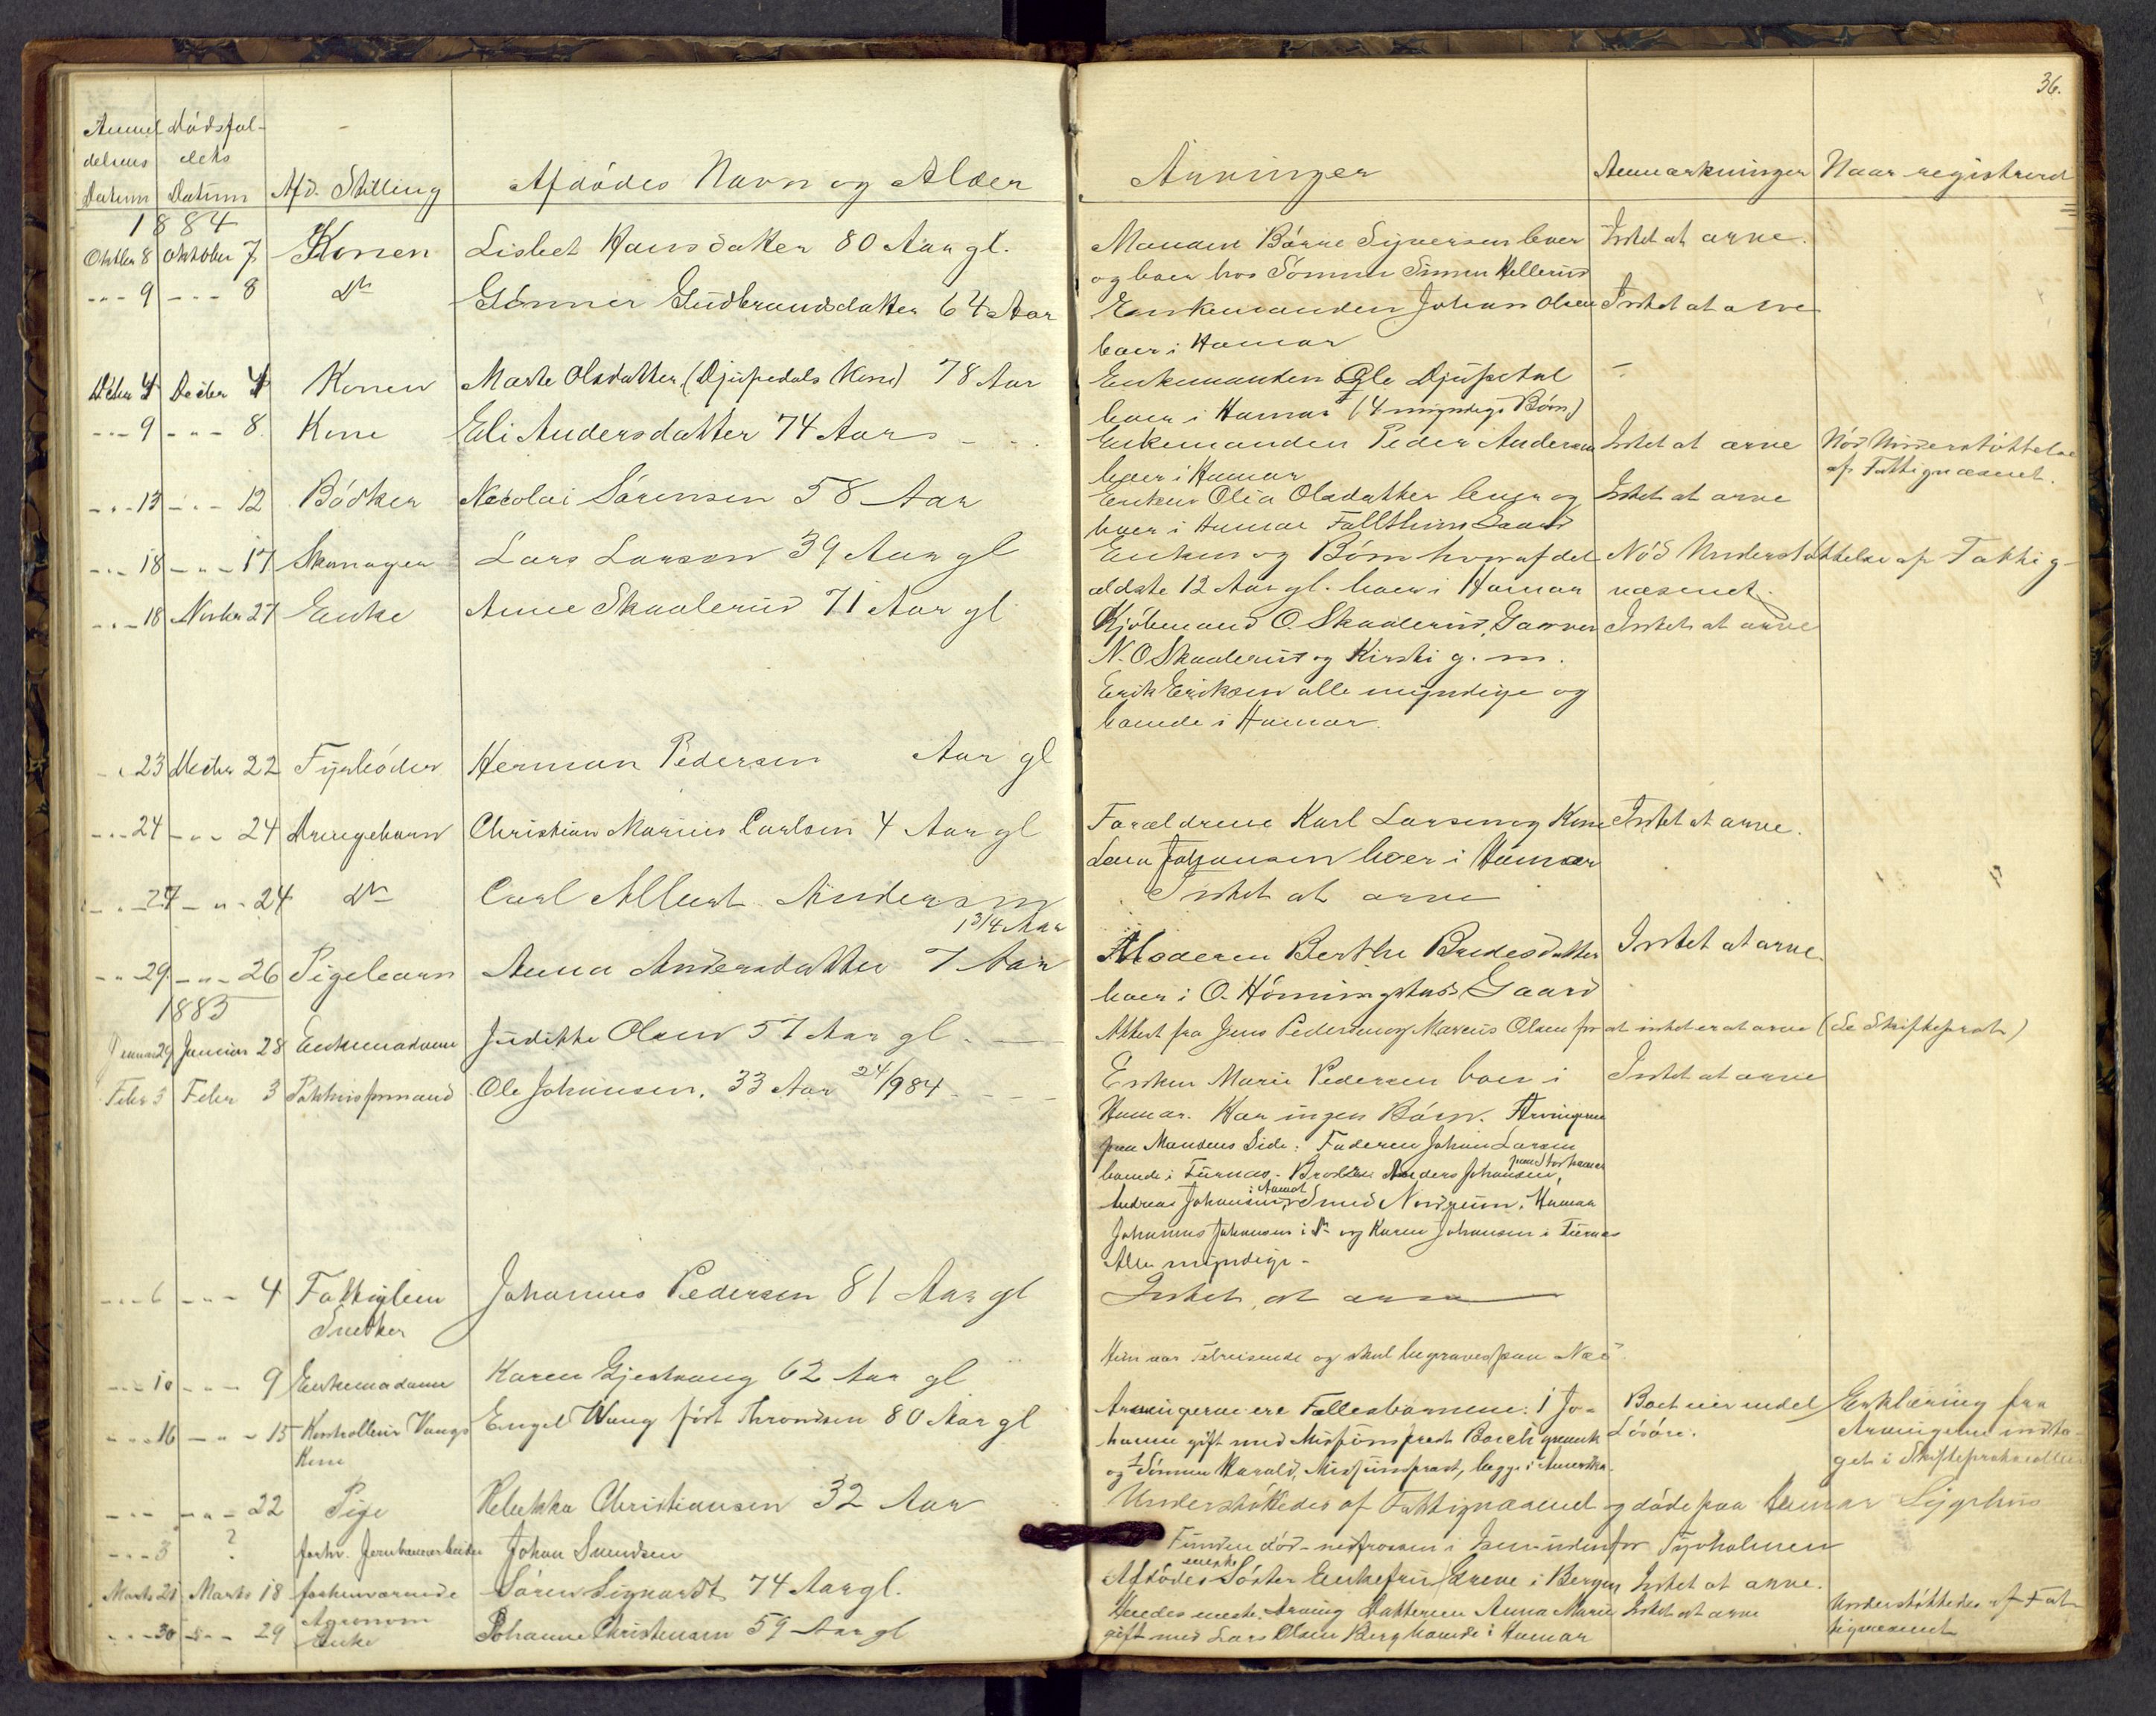 36.
Anmel- Dødsfal-
delsens dets
Datum Datum Afd. Stilling Afdødes Navn og Alder Arvinger Anmærkninger Naar registreret
1884
Oktbr 8 Oktober 7 Konen Lisbet Hansdatter 80 Aar gl. Manden Børre Syversen lever Intet at arve.
og boer hos Sønnen Simen Hellerud
" 9 " 8 Do Gunner Gudbrandsdatter 64 Aar Enkemanden Johan Olsen Intet at arve
boer i Hamar
Decbr 4 Decbr 4 Konen Marte Olsdatter (Djupedals Kone) 78 Aar Enkemanden Ole Djupedal "
boer i Hamar (4 myndige Børn)
" 9 " 8 Kone Eli Andersdatter 74 Aar Enkemanden Peder Andersen Intet at arve Nød Understøttelse
boer i Hamar af Fattigvæsenet.
" 13 " 12 Bødker Nicolai Sørensen 58 Aar Enken Olia Olsdatter lever og Intet at arve
boer i Hamar Gaard
" 18 " 17 Skomager Lars Larsen 39 Aar gl Enken og Børn hvoraf det Nød Understøttelse af Fattig-
ældste 12 Aar gl. boer i Hamar væsenet.
" 18 Novbr 27 Enke Anne Skaalerud 71 Aar gl Kjøbmand O. Skaalerud, Garver Intet at arve
N. O Skaalerud og Kirsti g. m.
Erik Eriksen alle myndige og
boende i Hamar.
" 23 Decbr 22 Fyrbøder Herman Pedersen Aar gl
" 24 " 24 Drengebarn Christian Marius Carlsen 4 Aar gl Forældrene Karl Larsen og Kone Intet at arve.
Lena Johansen boer i Hamar
" 27 " 24 Do Carl Albert Andersen Intet at arve
1 3/4 Aar
" 29 " 26 Pigebarn Anna Andersdatter 7 Aar Moderen Berthe Bredesdatter Intet at arve.
boer i O. Hønningstads Gaard
1885
Januar 29 Januar 28 Enkemadame Judikke Olsen 57 Aar gl. Attest fra Jens Pedersen og Marcus Olsen for at intet er at arve (Se Skifteprot.)
Febr 3 Febr 3 Pakhusformand Ole Johansen, 33 Aar 24/9 84 Enken Marie Pedersen boer i Intet at arve
Hamar. Har ingen Børn. Arvingerne
paa Mandens Side: Faderen Johan Larsen
boende i Furnæs. Brødrene Anders Johansen, paa Storhamar
Andreas Johansen, i Aamot Smed i Hamar
Johannes Johansen i Do og Karen Johansen i Furnæs
Alle myndige.
" 6 " 4 Fattiglem Johannes Pedersen 81 Aar gl Intet at arve
Snedker
" 10 " 9 Enkemadame Karen Gjestvang 62 Aar gl Hun var tilreisende og skal begraves paa Næs
" 16 " 15 Kontrollør Vangs Engel Wang født Throndsen 80 Aar gl Arvingerne ere Fællesbørnene: 1 Jo- Boet eier endel Erklæring fra
Kone hanne gift med Missionsprest Borchgrevink Løsøre. Arvingerne indta-
og 1 Sønnen Harald, Missionsprest, begge i Amerika. get i Skifteprotocollen
" " 22 Pige Rebekka Christiansen 32 Aar Understøttedes af Fattigvæsenet og døde paa Hamar Sygehus
" 3 ? forhv. Jernbanearbeider Johan Svendsen Funden død - nedfrossen i Isen udenfor Tyvholmen
Marts 21 Marts 18 forhenværende Søren Signardt 74 Aar gl. Afdødes eneste Søster Enkefru Greve i Bergen Intet at arve.
Agronom
" 30 " 29 Enke Johanne Christensen 59 Aar gl Hendes eneste Arving Datteren Anna Marie Intet at arve Understøttedes af Fat-
gift med Lars Olsen Berg boende i Hamar tigvæsenet